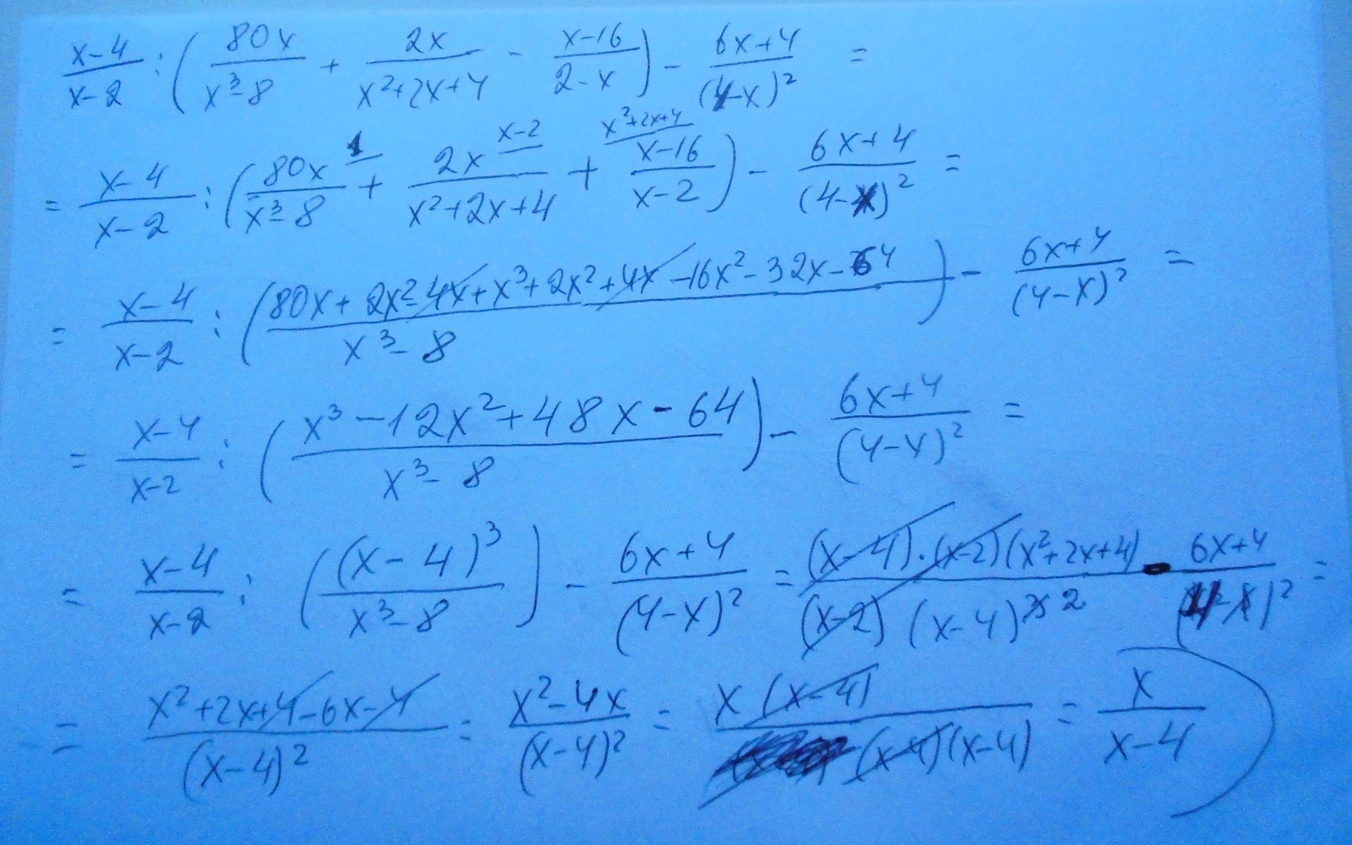 (x-4)/(x-2) : (80x/(x³-8) + 2x/(x²+2x+4) - (x-16)/(2-x)) - (6x+4)/(4-x)² =
= (x-4)/(x-2) : (80x/(x³-8) ^1 + 2x/(x²+2x+4) ^(x-2) + (x-16)/(x-2) ^(x²+2x+4)) - (6x+4)/(4-x)² =
= (x-4)/(x-2) : ((80x + 2x² - 4x + x³ + 2x² + 4x - 16x² - 32x - 64)/(x³-8)) - (6x+4)/(4-x)² =
= (x-4)/(x-2) : ((x³ - 12x² + 48x - 64)/(x³-8)) - (6x+4)/(4-x)² =
= (x-4)/(x-2) : ((x-4)³/(x³-8)) - (6x+4)/(4-x)² = (x-4)·(x-2)(x²+2x+4)/((x-2)(x-4)²) - (6x+4)/(4-x)² =
= (x²+2x+4-6x-4)/(x-4)² = (x²-4x)/(x-4)² = x(x-4)/((x-4)(x-4)) = x/(x-4)